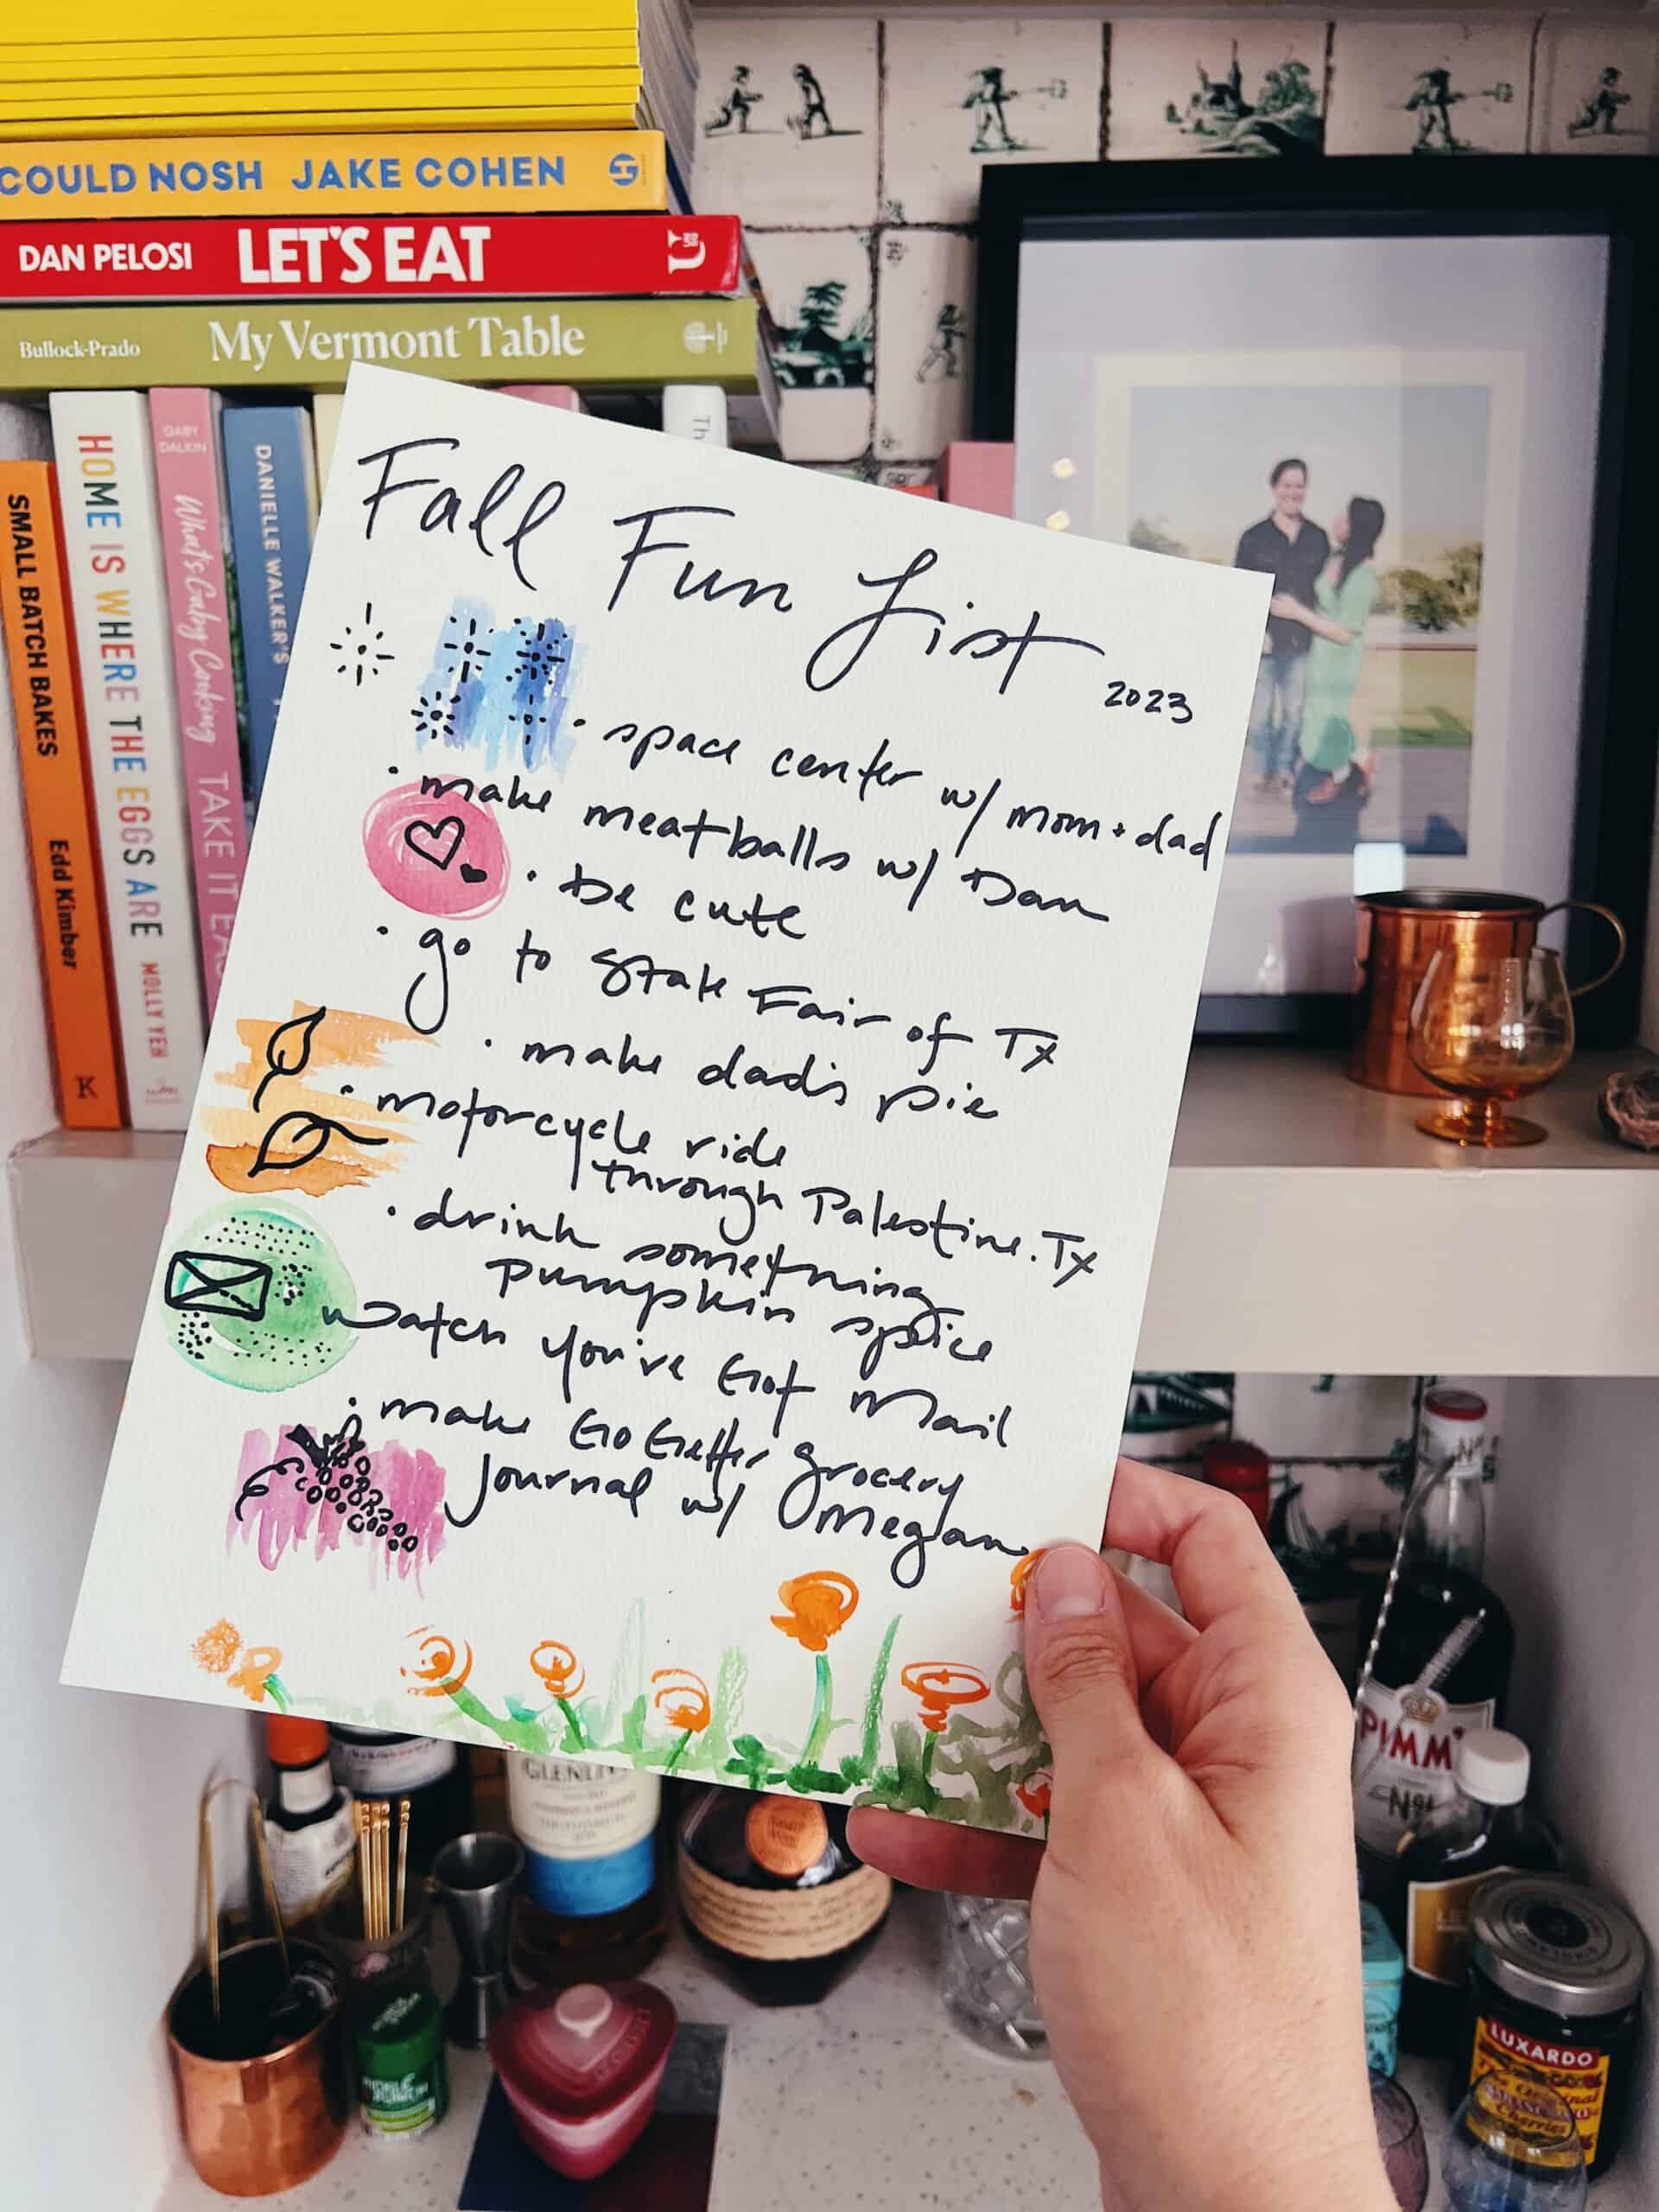 COULD NOSH JAKE COHEN
DAN PELOSI LET'S EAT
Bullock-Prado My Vermont Table
SMALL BATCH BAKES Edd Kimber K
HOME IS WHERE THE EGGS ARE MOLLY YEH
GABY DALKIN What's Gaby Cooking TAKE IT EA
DANIELLE WALKER'S
Th
Fall Fun List
2023
• space center w/ mom + dad
• make meatballs w/ Dan
• be cute
• go to State Fair of Tx
• make dad's pie
• motorcycle ride
through Palestine, Tx
• drink something
pumpkin spice
watch You've Got Mail
• make Go Getter grocery
journal w/ Meghan
GLENLI
PIMM'
Nº1
LUXARDO
Original
Cherries